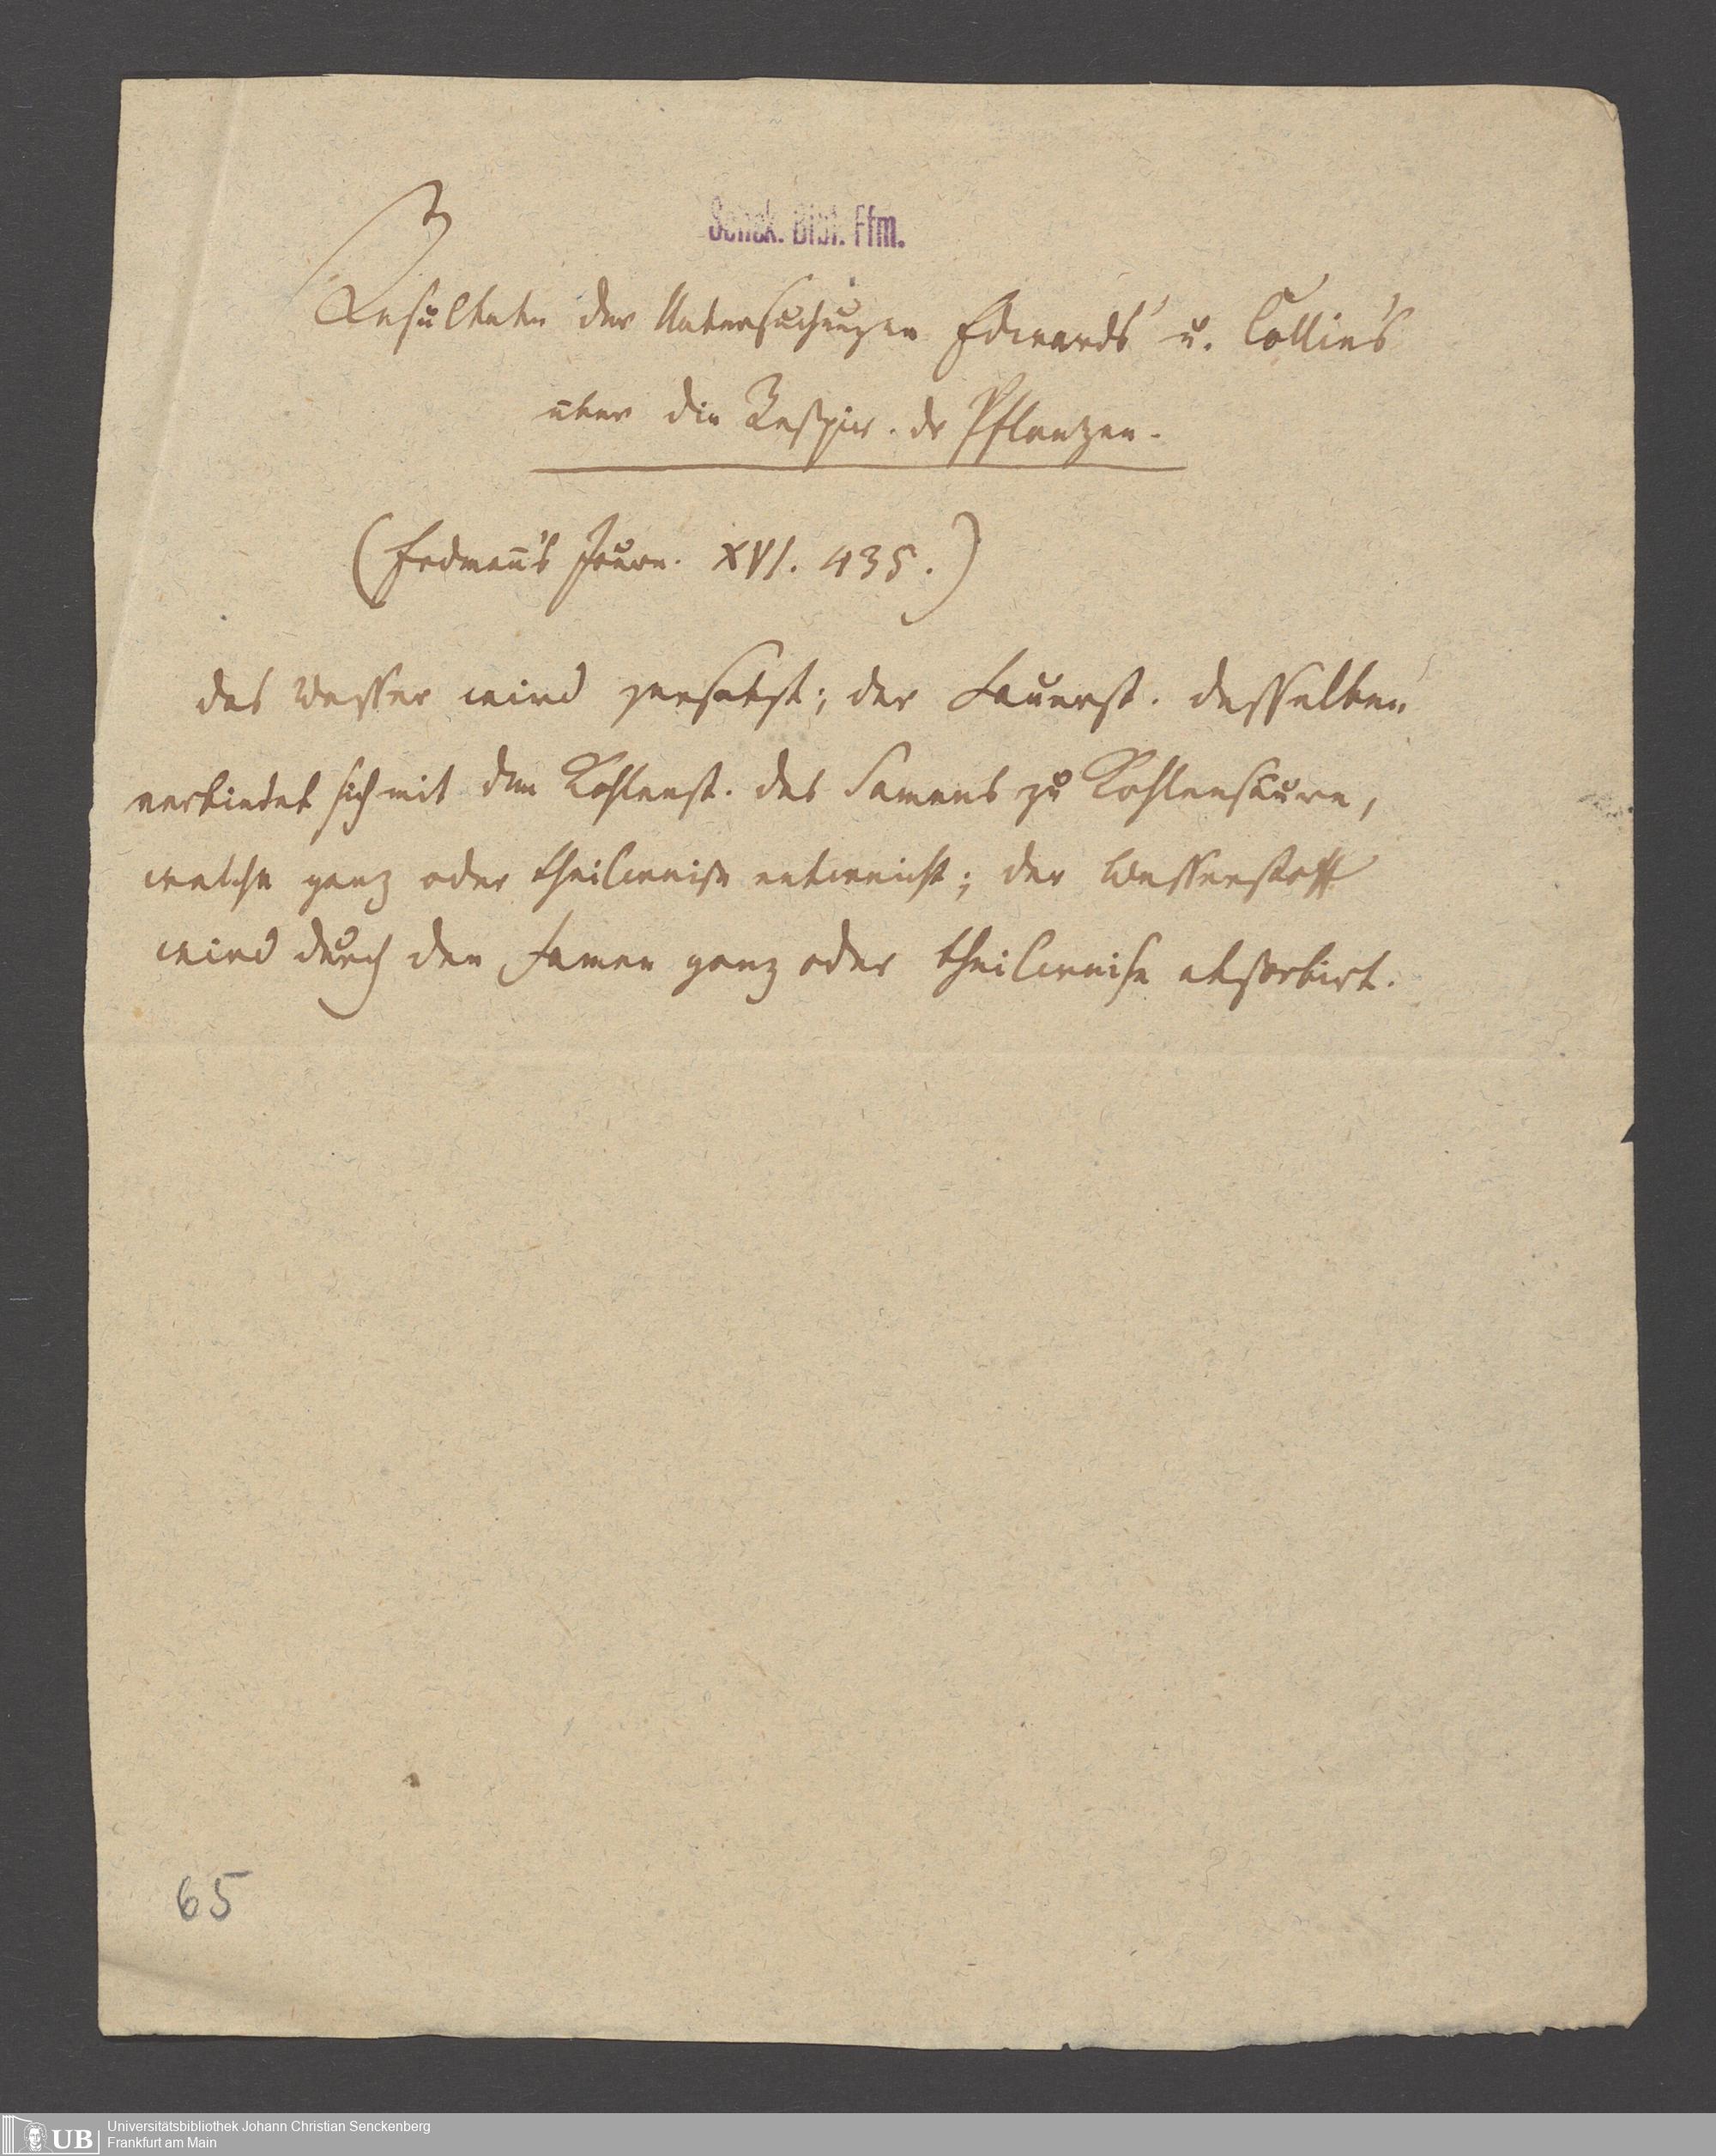 Senck. Bibl. Ffm.
Resultate der Untersuchungen Edwards' u. Collin's
über die Respir. dr Pflanzen.
(Erdmañ's Journ. XVI. 435.)
Das Wasser wird zersetzt; der Sauerst. desselben
verbindet sich mit dem Kohlenst. des Samens zu Kohlensäure,
welche ganz oder theilweise entweicht; der Wasserstoff
wird durch den Samen ganz oder theilweise absorbirt.
65
UB
Universitätsbibliothek Johann Christian Senckenberg
Frankfurt am Main